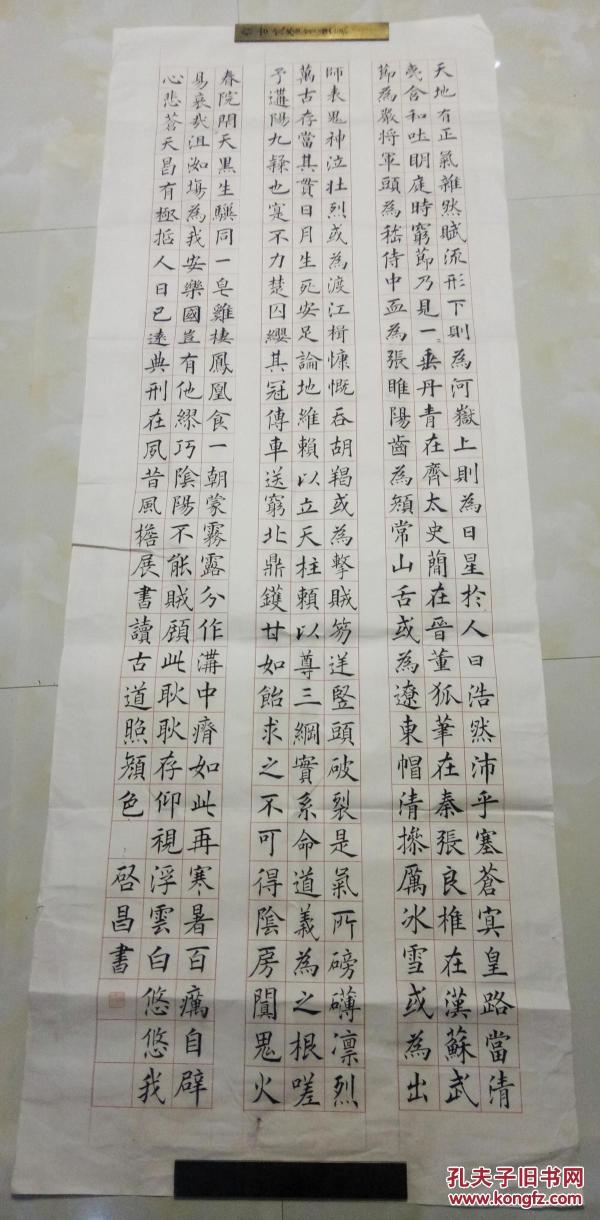 天地有正氣雜然賦流形下則為河嶽上則為日星於人曰浩然沛乎塞蒼冥皇路當清
夷含和吐明庭時窮節乃見一一垂丹青在齊太史簡在晉董狐筆在秦張良椎在漢蘇武
節為嚴將軍頭為嵇侍中血為張睢陽齒為顏常山舌或為遼東帽清操厲冰雪或為出
師表鬼神泣壯烈或為渡江楫慷慨吞胡羯或為擊賊笏逆豎頭破裂是氣所磅礴凜烈
萬古存當其貫日月生死安足論地維賴以立天柱賴以尊三綱實系命道義為之根嗟
予遘陽九隸也寔不力楚囚纓其冠傳車送窮北鼎鑊甘如飴求之不可得陰房闃鬼火
春院閉天黑牛驥同一皂雞棲鳳凰食一朝蒙霧露分作溝中瘠如此再寒暑百癘自辟
易哀哉沮洳場為我安樂國豈有他繆巧陰陽不能賊顧此耿耿存仰視浮雲白悠悠我
心悲蒼天曷有極哲人日已遠典刑在夙昔風檐展書讀古道照顏色 啓昌書
孔夫子旧书网
www.kongfz.com